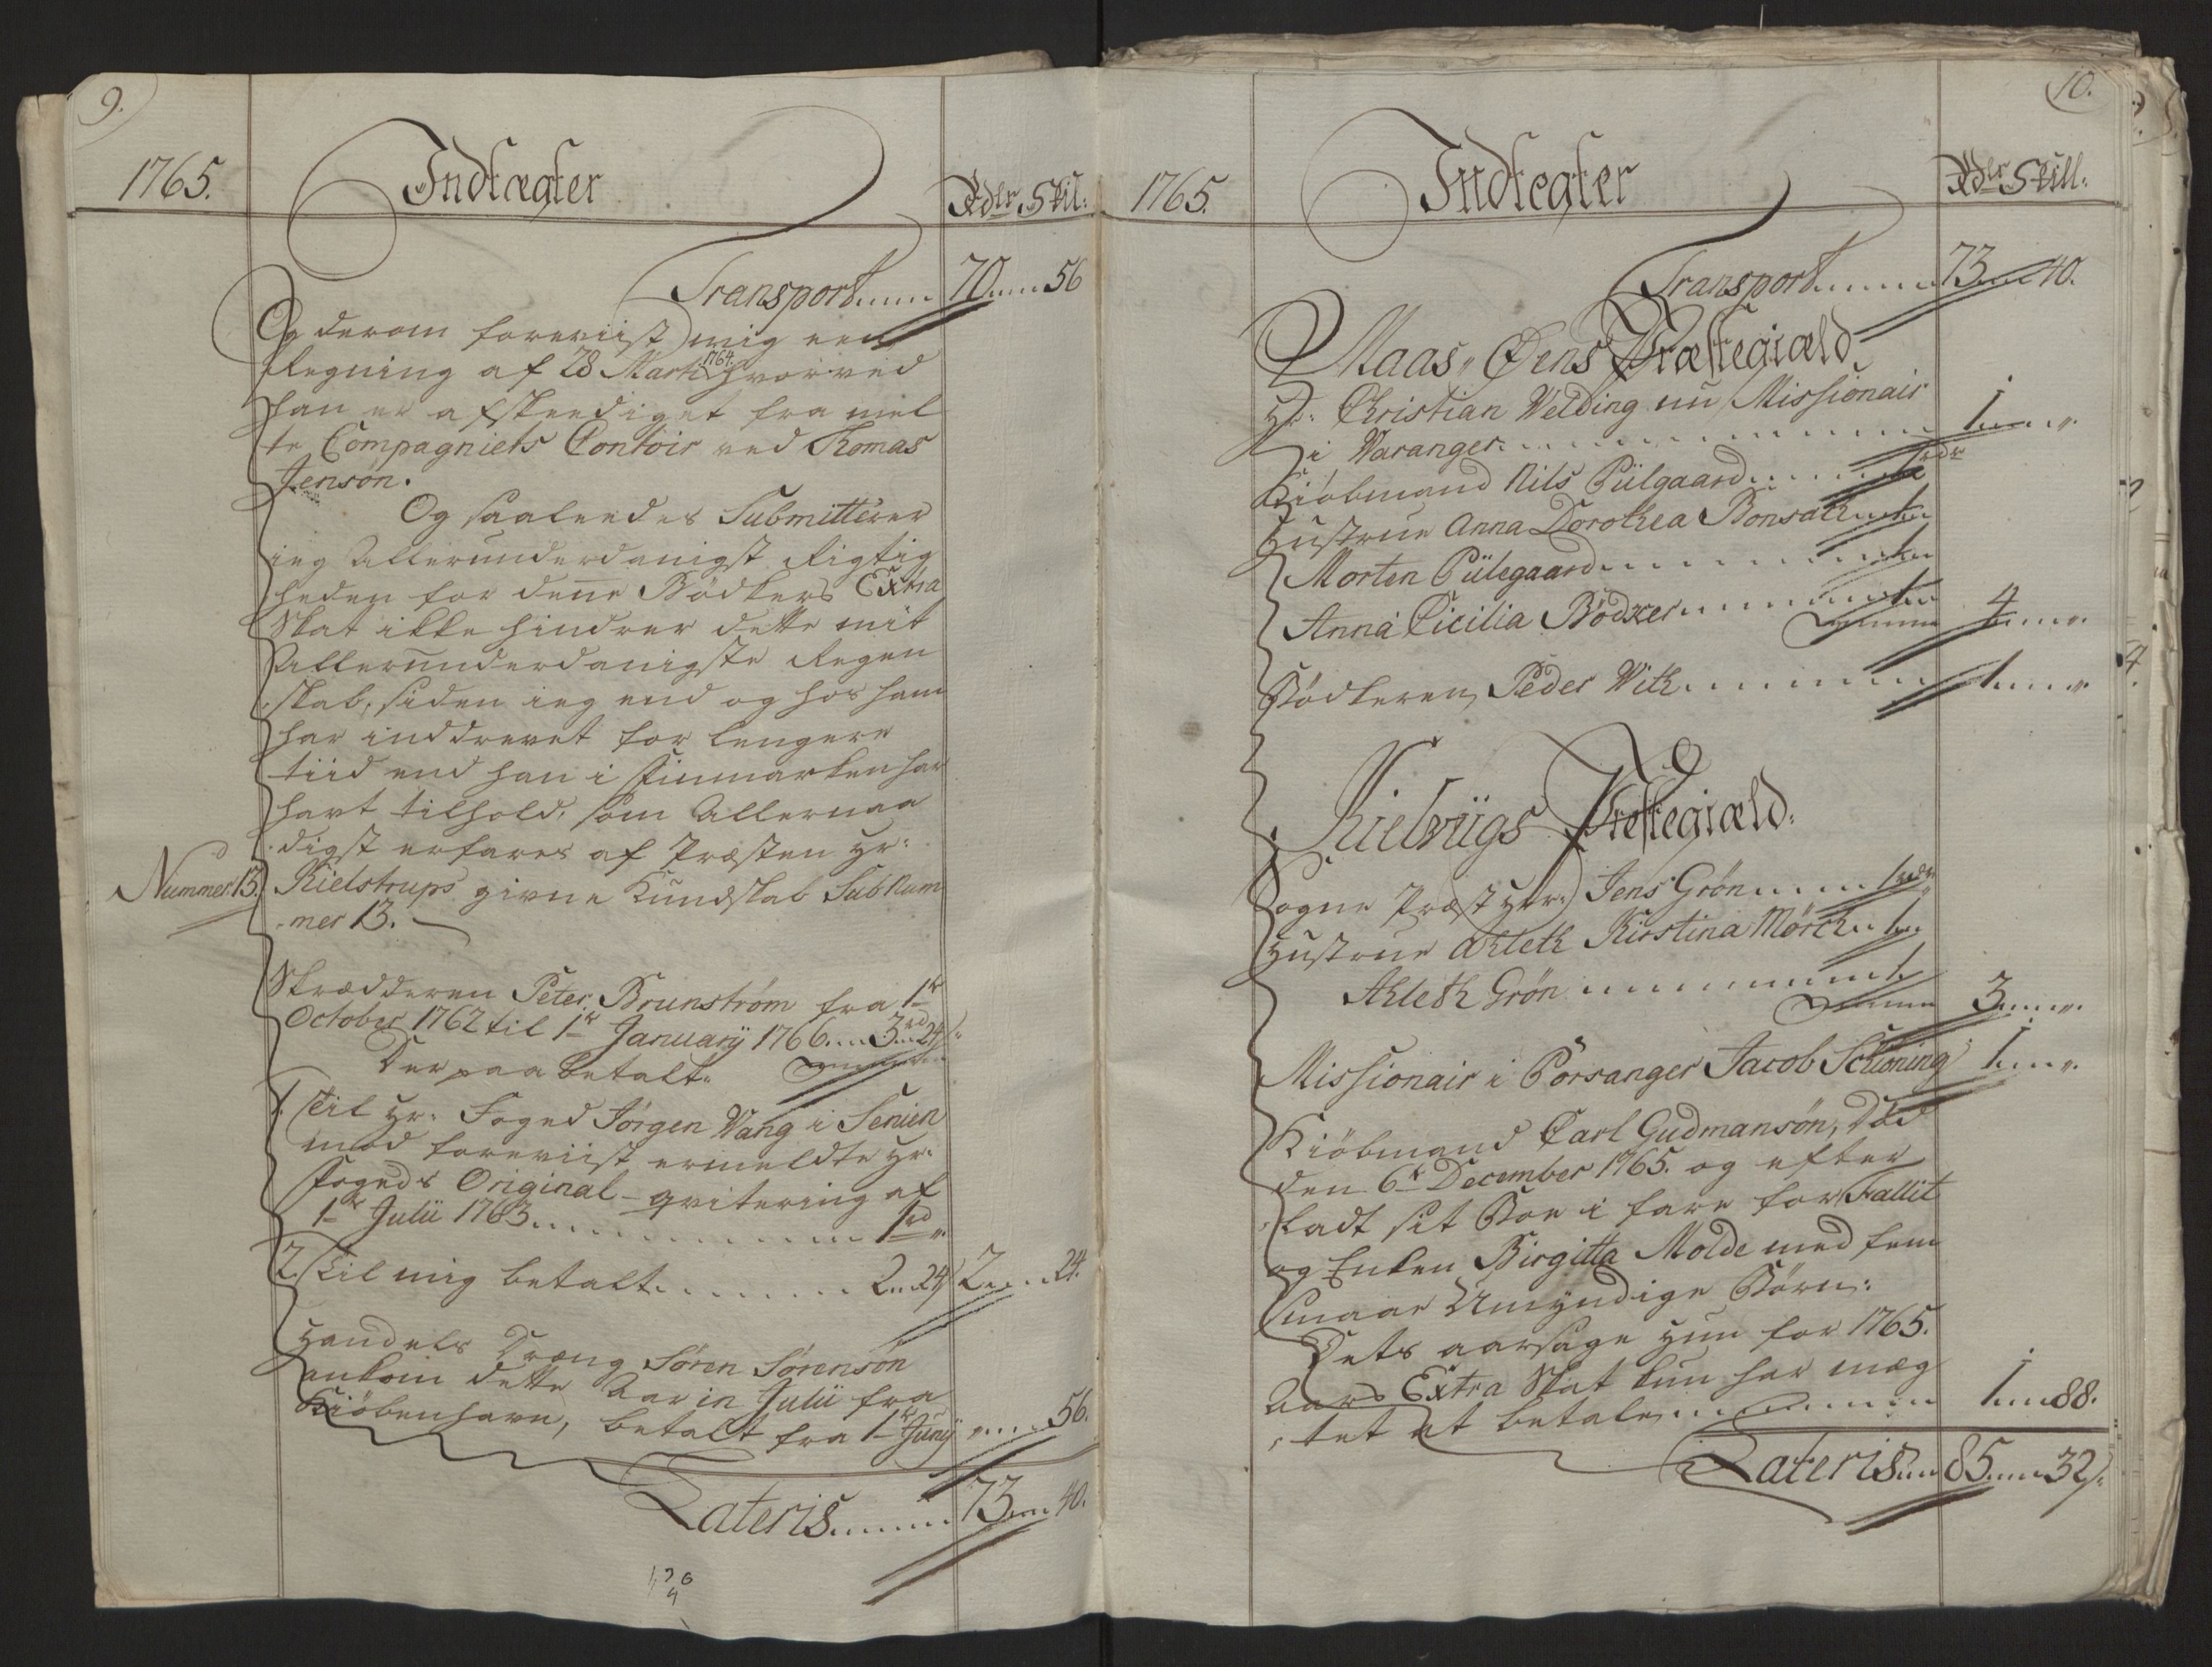 9.
1765.
Indtægter
Rdlr Skil:
Transport 70 56
Og derom foreviist mig een
Regning af 28 Martii 1764. hvorved
han er afskeediget fra mel
te Compagniets Contoir ved Thomas
Jensøn.
Og saaleedes Submitterer
ieg Allerunderdanigst Rigtig
heden for denne Bödkers Extra
Skat ikke hindrer dette mit
Allerunderdanigste Regen
skab, siden ieg end og hos ham
har inddrevet for lengere
tiid end han i Finmarken har
havt tilhold, som Allernaa
digst erfares af Præsten Hr:
Nummer 13.
Kielstrups givne Kundskab Sub Num
mer 13.
Skrædderen Peter Brunström fra 1te
October 1762 til 1te January 1766 3rd 24s:
Der paa betalt:
1. Til Hr: Foged Jörgen Wang i Senien
mod foreviist ermeldte Hr:
Fogeds Original qvitering af
1te Julii 1763 1rd „
2. Til mig betalt 2 24 2 24.
Handels Dreng Sören Sörensön
ankom dette Aar in Julii fra
Kiöbenhavn, betalt fra 1te Juny „ 56.
Lateris 73 40.
10.
1765.
Indtegter
Rdlr Skill:
Transport 73 40.
Maas-Öens Præstegiæld.
Hr: Christian Welding nu Missionair
i Waranger 1 „
Kiöbmand Nils Pülgaard 1rdr
Hustrue Anna Dorothea Bonsach 1
Morten Pülegaard 1
Anna Cicilia Bödker 1
4 „
Bödkeren Peder With 1 „
Kielviigs Prestegiæld.
Sogne Præst Hr: Jens Grön 1rdr
Hustrue Ahleth Kirstina Mörch 1
Ahleth Grön 1
3 „
Missionair i Porsanger Jacob Schöning 1 „
Kiöbmand Carl Gudmansön, död
den 6te December 1765. og efter
ladt sit Boe i fare for Fallit
og Enken Birgitta Molde med fem
smaae Umyndige Börn:
Dets aarsage Hun for 1765.
Aars Extra Skat kun har mæg
tet at betale 1 88.
Lateris 85 32s: